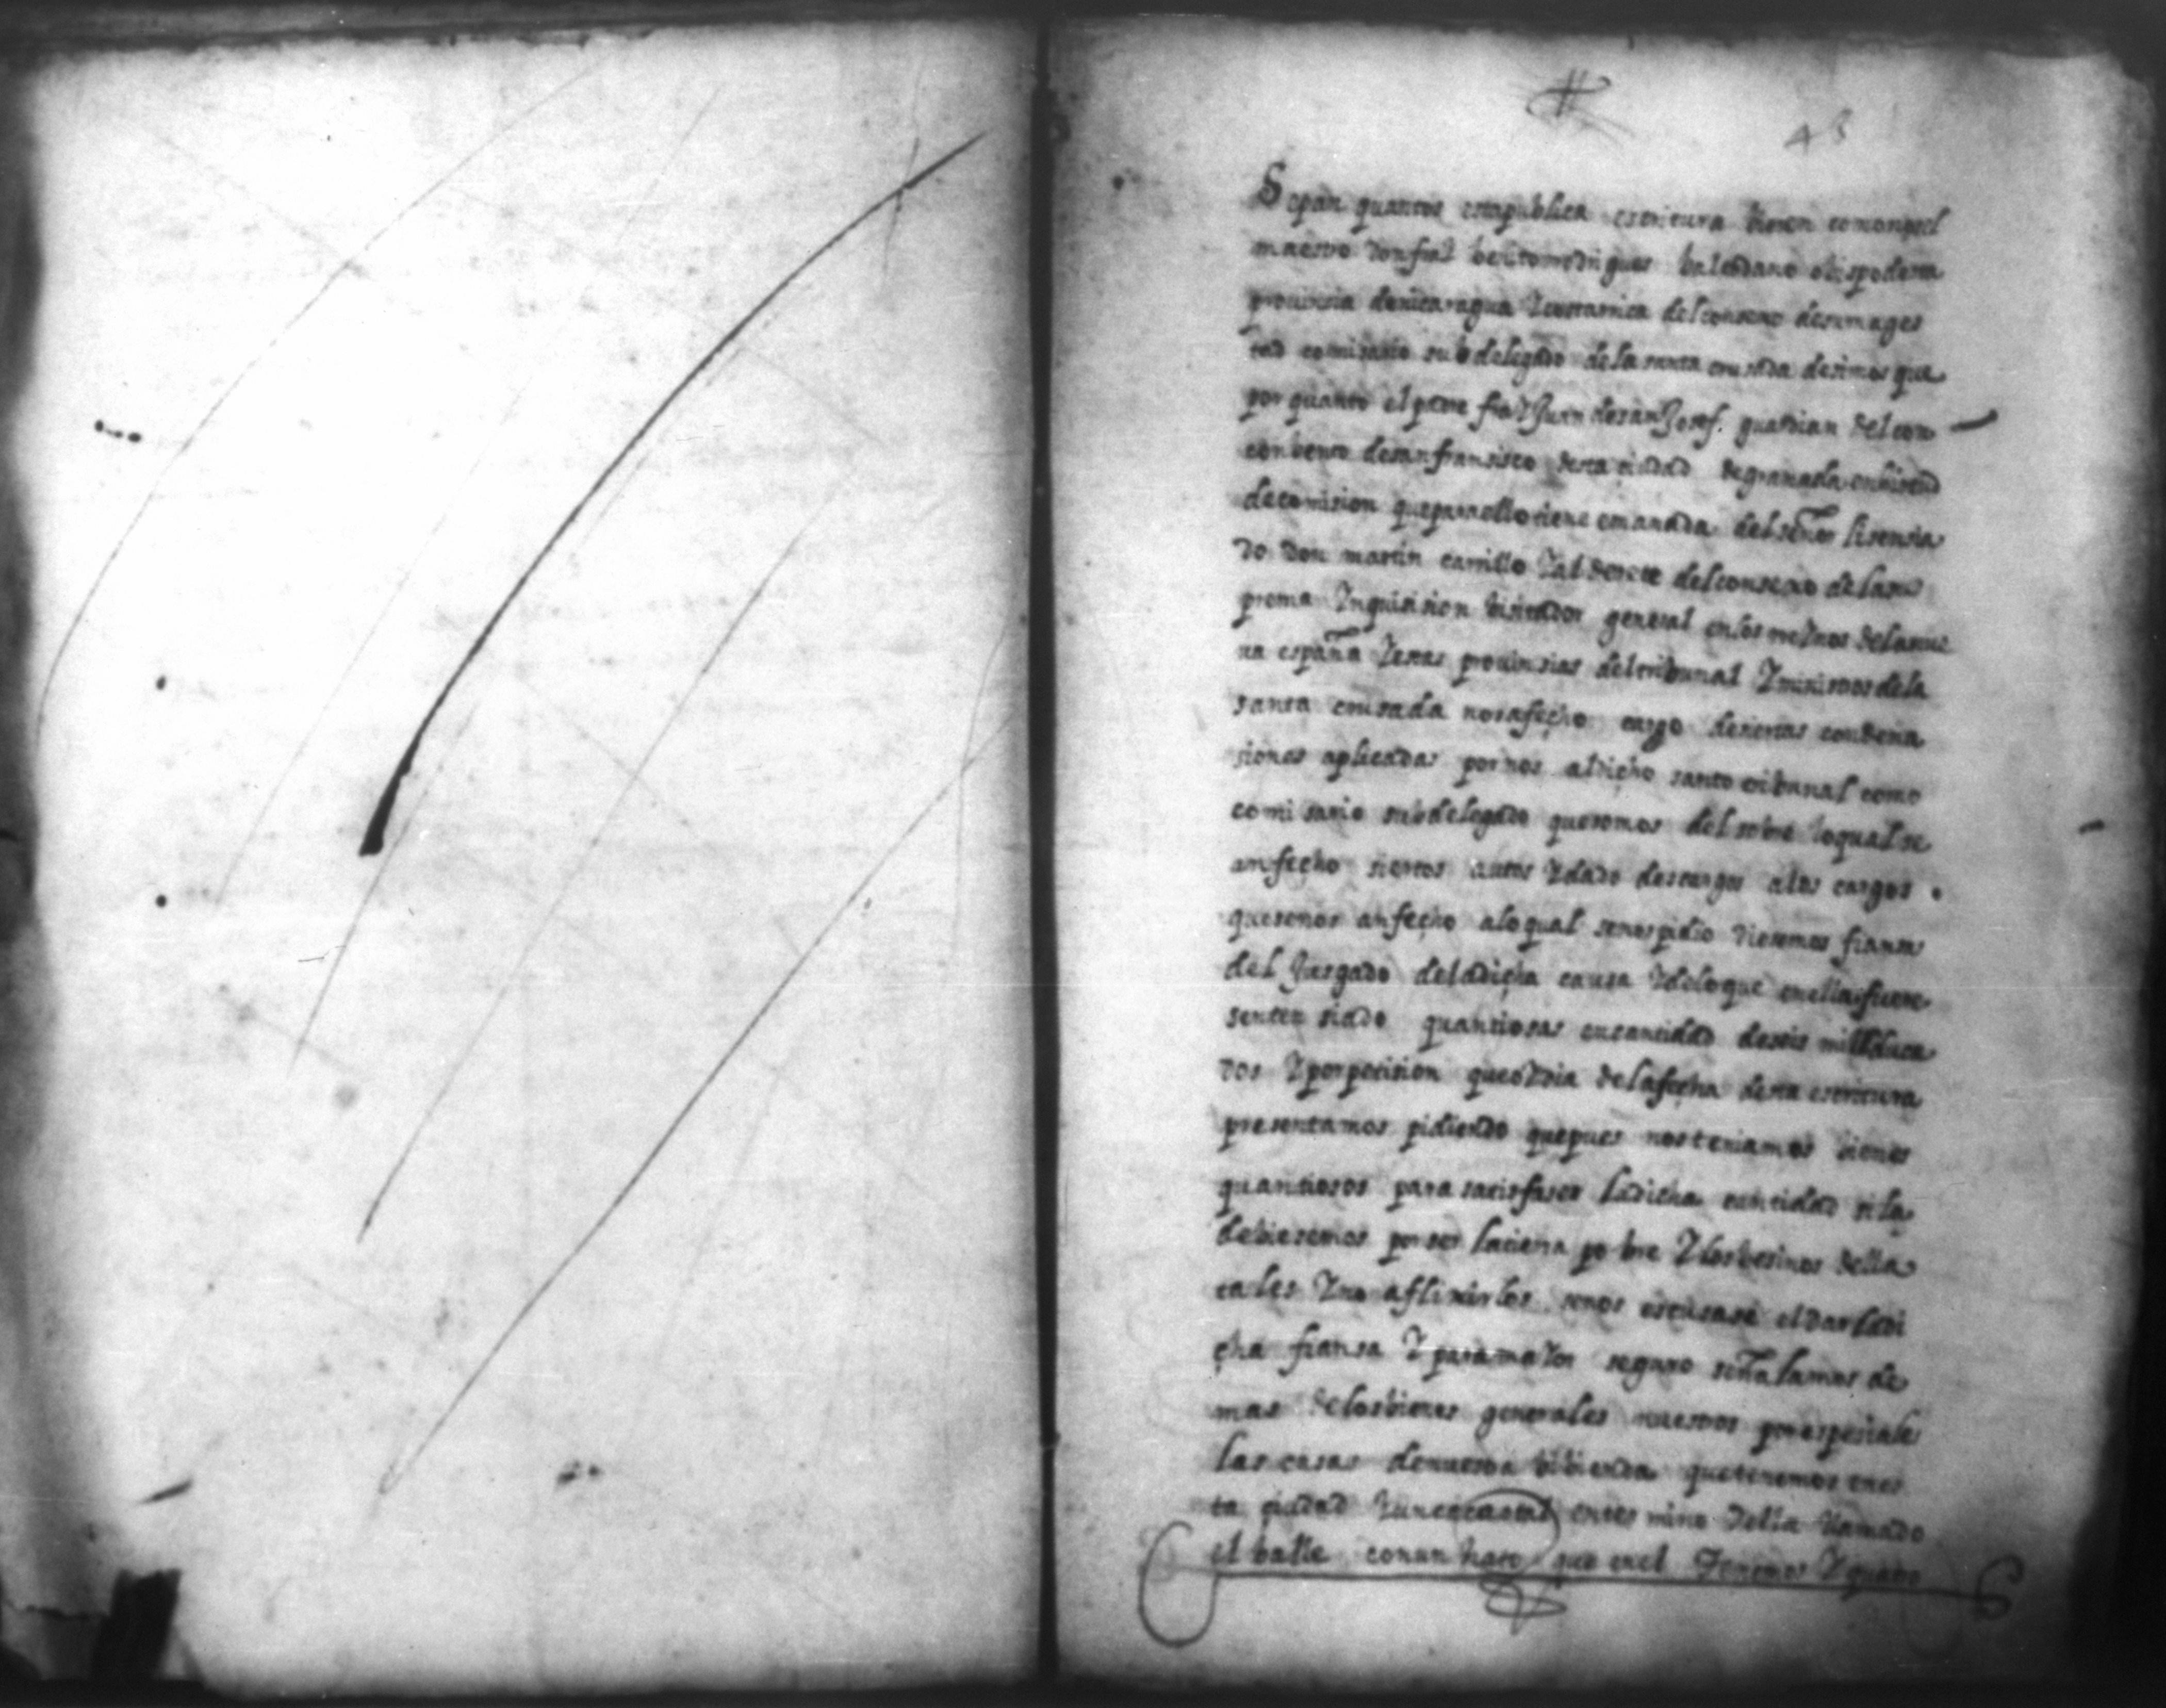 Sepan quantos estapublica escritura bieren comonos el
maestro donfrai benitorodrigues baltodano obispodesta
prouinsia denicaragua Ycostarrica delconsexo desumages
tad comisario subdelegado delasanta crusada desimos que
porquanto elpadre fraYJuan desanJosef. guardian delcon
conbento desanfransisco desta ciudad degranada enbirtud
decomision queparaellotiene emanada delseñor lisensia
do don martin carrillo Yalderete delconsexo delasu
prema Ynquisision bisitador general enlosreYnos delanue
ua españa Yestas prouinsias deltribunal Yministros dela
santa crusada nosafecho cargo desiertas condena
siones aplicadas pornos aldicho santo tribunal como
comisario subdelegado quesomos del sobre loqual se
anfecho siertos autos Ydado descargos alos cargos
quesenos anfecho aloqual senospidio diesemos fiansas
del Jusgado deladicha causa Ydeloque enellafuere
sentensiado quantiosas encantidad deseis millduca
dos Yporpetision queoYdia delafecha desta escritura
presentamos pidiendo quepues nosteniamos bienes
quantiosos para satisfaser ladicha cantidad sila
debiesemos porser latierra pobre Ylosbesinos della
tales Yno aflixirlos senos escusase eldarladi
cha fiansa YparamaYor seguro señalamos de
mas delosbienes generales nuestros porespesiales
las casas denuestra bibienda quetenemos enes
ta ciudad Yunecacaotal entermino della llamado
el balle conun hato que enel tenemos Yquatro